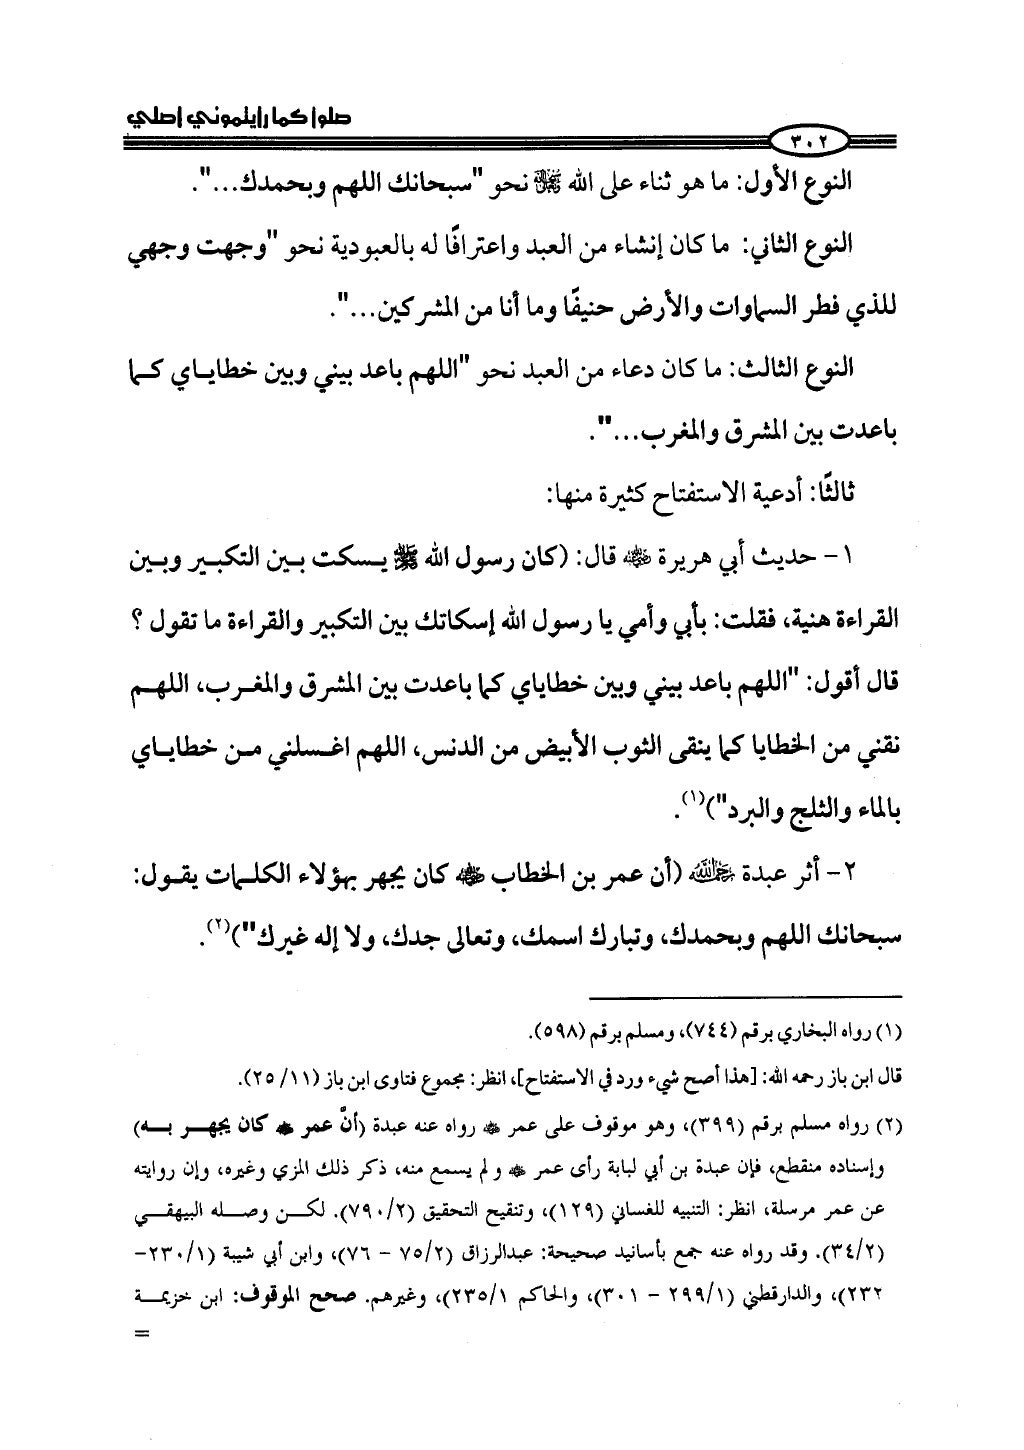 صلوا كما رأيتموني أصلي
٣٠٢
النوع الأول: ما هو ثناء على الله ﷻ نحو "سبحانك اللهم وبحمدك...".
النوع الثاني: ما كان إنشاء من العبد واعترافًا له بالعبودية نحو "وجهت وجهي
للذي فطر السماوات والأرض حنيفًا وما أنا من المشركين...".
النوع الثالث: ما كان دعاء من العبد نحو "اللهم باعد بيني وبين خطاياي كما
باعدت بين المشرق والمغرب...".
ثالثًا: أدعية الاستفتاح كثيرة منها:
١- حديث أبي هريرة ﵁ قال: (كان رسول الله ﷺ يسكت بين التكبير وبين
القراءة هنية، فقلت: بأبي وأمي يا رسول الله إسكاتك بين التكبير والقراءة ما تقول ؟
قال أقول: "اللهم باعد بيني وبين خطاياي كما باعدت بين المشرق والمغرب، اللهم
نقني من الخطايا كما ينقى الثوب الأبيض من الدنس، اللهم اغسلني من خطاياي
بالماء والثلج والبرد")(١).
٢- أثر عبدة ﵀ (أن عمر بن الخطاب ﵁ كان يجهر بهؤلاء الكلمات يقول:
سبحانك اللهم وبحمدك، وتبارك اسمك، وتعالى جدك، ولا إله غيرك")(٢).
(١) رواه البخاري برقم (٧٤٤)، ومسلم برقم (٥٩٨).
قال ابن باز رحمه الله: [هذا أصح شيء ورد في الاستفتاح]، انظر: مجموع فتاوى ابن باز (١١/ ٢٥).
(٢) رواه مسلم برقم (٣٩٩)، وهو موقوف على عمر ﵁ رواه عنه عبدة (أنَّ عمر ﵁ كان يجهر به)
وإسناده منقطع، فإن عبدة بن أبي لبابة رأى عمر ﵁ ولم يسمع منه، ذكر ذلك المزي وغيره، وإن روايته
عن عمر مرسلة، انظر: التنبيه للغساني (١٢٩)، وتنقيح التحقيق (٧٩٠/٢). لكن وصله البيهقي
(٣٤/٢). وقد رواه عنه جمع بأسانيد صحيحة: عبدالرزاق (٧٥/٢ – ٧٦)، وابن أبي شيبة (٢٣٠/١-
٢٣٢)، والدارقطني (٢٩٩/١ – ٣٠١)، والحاكم ٢٣٥/١)، وغيرهم. صحح الموقوف: ابن خزيمة
=